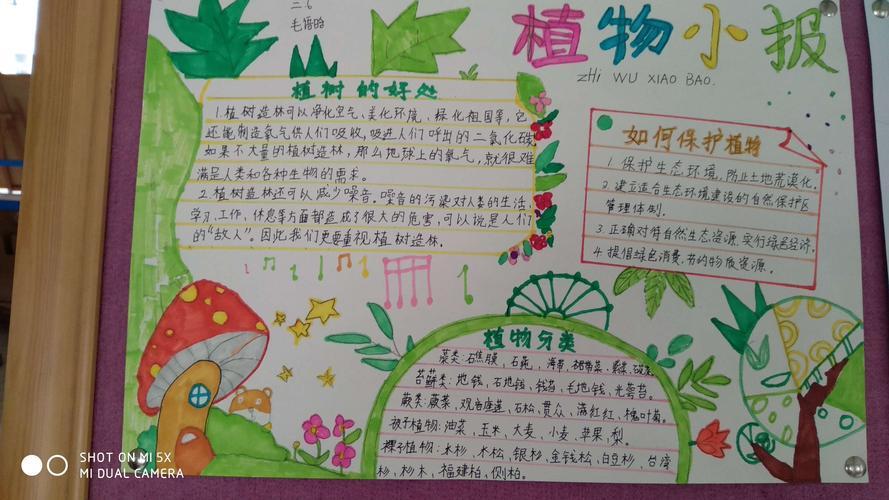 二.6
毛语晗
植物小报
ZHI WU XIAO BAO.
植树的好处
1.植树造林可以净化空气、美化环境、绿化祖国等,它
还能制造氧气供人们吸收,吸进人们呼出的二氧化碳,
如果不大量的植树造林,那么地球上的氧气,就很难
满足人类和各种生物的需求。
2.植树造林还可以减少噪音。噪音的污染对人类的生活、
学习、工作、休息等方面都造成了很大的危害,可以说是人们
的“敌人”。因此我们更要重视植树造林。
如何保护植物
1.保护生态环境,防止土地荒漠化。
2.建立适合生态环境建设的自然保护区
管理体制.
3.正确对待自然生态资源,实行绿色经济。
4.提倡绿色消费,节约物质资源。
植物分类
菜类:石焦膜、石莼、海带、
苔藓类:地钱、石地钱、钱苔、毛地钱、光萼苔。
蕨类:蕨菜、观音座莲、石松、贯众、满红红、槐叶萍。
被子植物:油菜、玉米、大麦、小麦、苹果、梨。
裸子植物:水杉、水松、银杉、金钱松、白豆杉、台湾
杉、杉木、福建柏、侧柏。
SHOT ON MI 5X
MI DUAL CAMERA